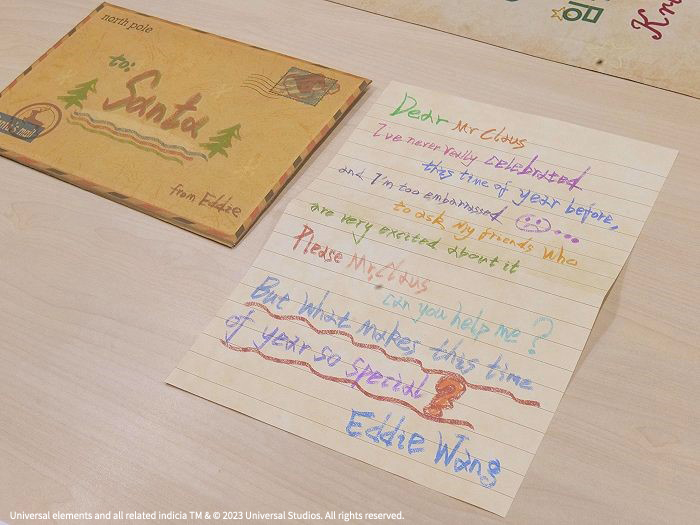 north pole
to:
Santa
from Eddie
Dear Mr Claus
I've never really celebrated
this time of year before,
and I'm too embarrassed
to ask my friends who
are very excited about it
Please Mr, Claus
can you help me ?
But what makes this time
of year so special ?
Eddie Wang
Universal elements and all related indicia TM & © 2023 Universal Studios. All rights reserved.